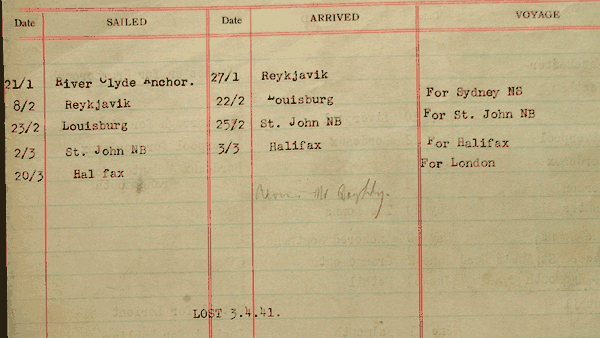 Date SAILED Date ARRIVED VOYAGE
21/1 River Clyde Anchor. 27/1 Reykjavik
8/2 Reykjavik 22/2 Louisburg For Sydney NS
23/2 Louisburg 25/2 St. John NB For St. John NB
2/3 St. John NB 3/3 Halifax For Halifax
20/3 Hal fax For London
LOST 3.4.41.